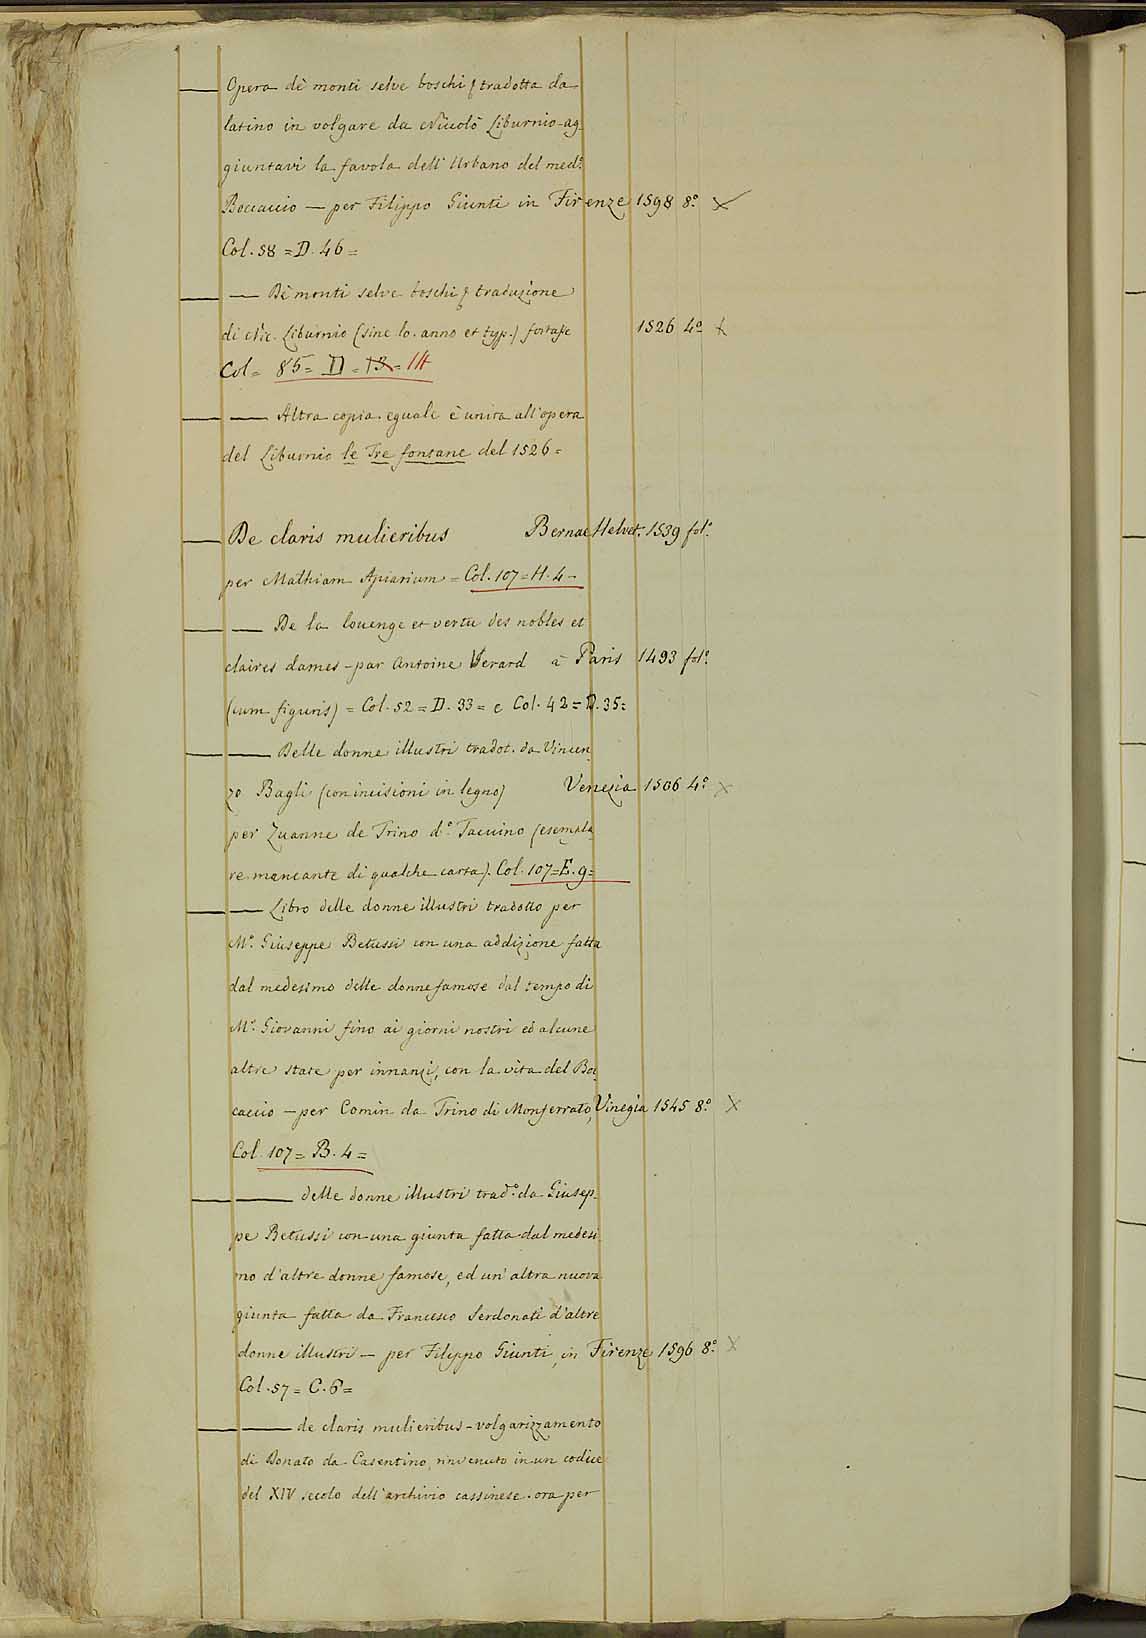 — Opera de' monti selve boschi & tradotta da
latino in volgare da Niccolò Liburnio-ag-
giuntavi la favola dell' Urbano del med.º
Boccaccio — per Filippo Giunti in Firenze 1598 8.º X
Col. 58 = D. 46 =
— — De' monti selve boschi & traduzione
di Nic. Liburnio (sine lo. anno et typ.) fortasse 1526 4.º X
Col = 85 = D = 13 = 14
— — Altra copia eguale è unita all'opera
del Liburnio le Tre fontane del 1526 =
— De claris mulieribus Bernae Helvet. 1539 fol.º
per Mathiam Apiarium = Col. 107 = H. 4 =
— — De la louenge et vertu des nobles et
claires dames - par Antoine Verard à Paris 1493 fol.º
(cum figuris) = Col. 52 = D. 33 = e Col. 42 = D. 35 =
— — Delle donne illustri tradot. da Vincen
zo Bagli (con incisioni in legno) Venezia 1506 4.º X
per Zuanne de Trino d.º Tacuino (esempla
re mancante di qualche carta). Col. 107 = E. 9 =
— — Libro delle donne illustri tradotto per
M.º Giuseppe Betussi con una addizione fatta
dal medesimo delle donne famose dal tempo di
M.º Giovanni fino ai giorni nostri ed alcune
altre state per innanzi, con la vita del Boc
caccio — per Comin da Trino di Monferrato, Vinegia 1545 8.º X
Col. 107 = B. 4 =
— — delle donne illustri trad.º da Giusep-
pe Betussi con una giunta fatta dal medesi
mo d'altre donne famose, ed un' altra nuova
giunta fatta da Francesco Serdonati d'altre
donne illustri — per Filippo Giunti, in Firenze 1596 8.º X
Col. 57 = C. 6 =
— — de claris mulieribus - volgarizzamento
di Donato da Casentino, rinvenuto in un codice
del XIV secolo dell'archivio cassinese. ora per